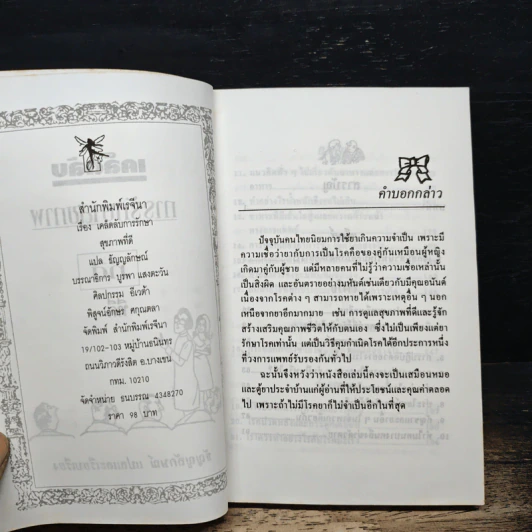 สำนักพิมพ์เรจีนา
เรื่อง เคล็ดลับการรักษา
สุขภาพที่ดี
แปล ธัญญลักษณ์
บรรณาธิการ บูรพา แสงตะวัน
ศิลปกรรม อีเวต้า
พิสูจน์อักษร ศกุณตลา
จัดพิมพ์ สำนักพิมพ์เรจีนา
19/102-103 หมู่บ้านอนินทร
ถนนวิภาวดีรังสิต อ.บางเขน
กทม. 10210
จัดจำหน่าย ธนบรรณ 4348270
ราคา 98 บาท
คำบอกกล่าว
ปัจจุบันคนไทยนิยมการใช้ยาเกินความจำเป็น เพราะมี
ความเชื่อว่ายากับการเป็นโรคคือของคู่กันเหมือนผู้หญิง
เกิดมาคู่กับผู้ชาย แต่มีหลายคนที่ไม่รู้ว่าความเชื่อเหล่านั้น
เป็นสิ่งผิด และอันตรายอย่างมหันต์เช่นเดียวกับมีคุณอนันต์
เนื่องจากโรคต่าง ๆ สามารถหายได้เพราะเหตุอื่น ๆ นอก
เหนือจากยาอีกมากมาย เช่น การดูแลสุขภาพที่ดีและรู้จัก
สร้างเสริมคุณภาพชีวิตให้กับตนเอง ซึ่งไม่เป็นเพียงแต่ยา
รักษาโรคเท่านั้น แต่เป็นวิธีคุมกำเนิดโรคได้อีกประการหนึ่ง
ที่วงการแพทย์รับรองกันทั่วไป
ฉะนั้นจึงหวังว่าหนังสือเล่มนี้คงจะเป็นเสมือนหมอ
และตู้ยาประจำบ้านแก่ผู้อ่านที่ให้ประโยชน์และคุณค่าตลอด
ไป เพราะถ้าไม่มีโรคยาก็ไม่จำเป็นอีกในที่สุด